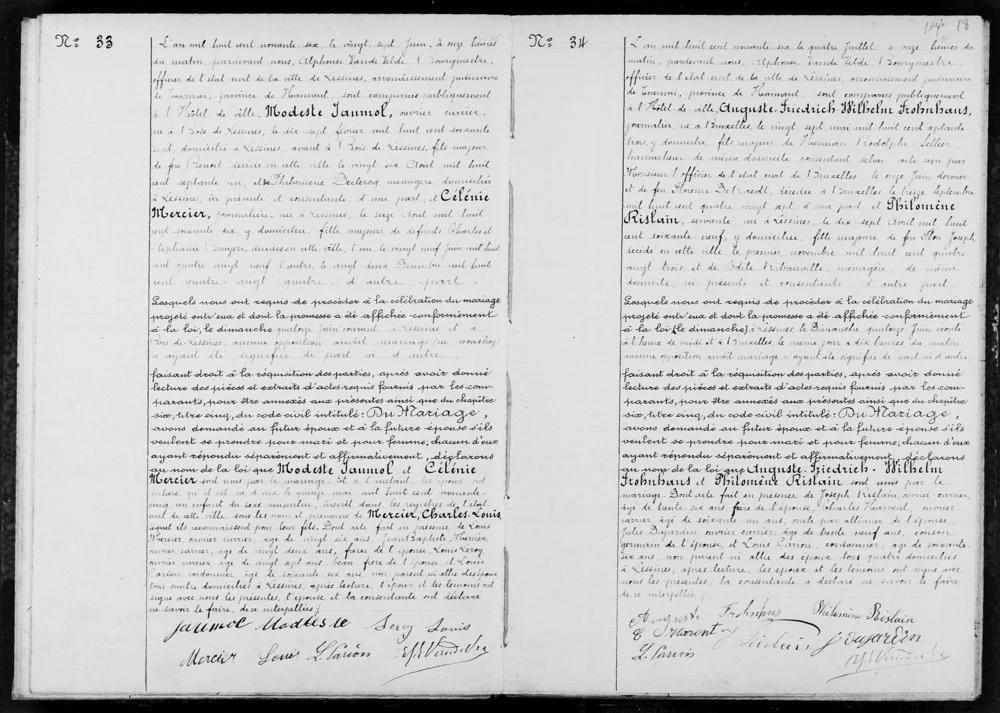 Nº 33
L'an mil huit cent nonante six, le vingt sept Juin, à onze heures
du matin, pardevant nous, Alphonse Vande Velde, Bourgmestre,
officier de l'état civil de la ville de Lessines, arrondissement judiciaire
de Tournai, province de Hainaut, sont comparus publiquement
à l'Hôtel de ville, Modeste Jaumol, ouvrier carrier,
né à Bois de Lessines, le dix sept février mil huit cent soixante
sept, domicilié à Lessines, avant à Bois de Lessines, fils majeur
de feu Benoit décédé en cette ville le vingt six Août mil huit
cent septante un, et de Philomène Declercq ménagère, domiciliée
à Lessines, ici présente et consentante d'une part, et Célénie
Mercier, journalière, née à Lessines, le seize Août mil huit
cent soixante six, y domiciliée, fille majeure de défunts Charles et
Stéphanie Bruyère, décédés en cette ville, l'un, le vingt neuf Juin mil huit
cent quatre vingt neuf l'autre, le vingt deux Décembre mil huit
cent quatre vingt quatre, d'autre part.
Lesquels nous ont requis de procéder à la célébration du mariage
projeté entr'eux et dont la promesse a été affichée conformément
à la loi, le dimanche quatorze Juin courant à Lessines et à
Bois de Lessines, aucune opposition audit mariage
n'ayant été signifiée de part ni d'autre.
faisant droit à la réquisition des parties, après avoir donné
lecture des pièces et extraits d'actes requis fournis par les com-
parants, pour être annexés aux présentes ainsi que du chapitre
six, titre cinq, du code civil intitulé: Du Mariage,
avons demandé au futur époux et à la future épouse s'ils
veulent se prendre pour mari et pour femme; chacun d'eux
ayant répondu séparément et affirmativement, déclarons
au nom de la loi que Modeste Jaumol et Célénie
Mercier sont unis par le mariage. Et à l'instant, les époux ont
déclaré qu'il est né d'eux le quinze mai mil huit cent nonante-
cinq, un enfant du sexe masculin, inscrit dans les registres de l'état
civil de cette ville, sous les nom et prénoms de Mercier, Charles-Louis,
lequel ils reconnaissent pour leur fils. Dont acte fait en présence de Louis
Mercier, ouvrier carrier, âgé de vingt six ans, Jean Baptiste Mercier,
ouvrier carrier, âgé de vingt deux ans, frères de l'épouse, Louis Leroy,
ouvrier carrier, âgé de vingt sept ans, beau frère de l'épouse, et Louis
Carion cordonnier, âgé de soixante six ans, non parent ni allié des époux,
tous quatre domiciliés à Lessines, après lecture, l'époux et les témoins ont
signé avec nous les présentes, l'épouse et la consentante ont déclaré
ne savoir le faire, de ce interpellées.
Jaumol Modeste Leroy Louis
Mercier L. Carion
Nº 34
18
L'an mil huit cent nonante six le quatre Juillet à onze heures du
matin, pardevant nous, Alphonse Vande Velde, Bourgmestre,
officier de l'état civil de la ville de Lessines, arrondissement judiciaire
de Tournai, province de Hainaut, sont comparus publiquement
à l'Hôtel de ville, Auguste-Friedrich-Wilhelm Frohnhaus,
journalier, né à Bruxelles, le vingt sept mai mil huit cent septante
trois, y domicilié, fils majeur de Herman Rodolphe, sellier
harnacheur de même domicile consentant selon acte reçu par
Monsieur l'officier de l'état civil de Bruxelles le onze Juin dernier
et de feu Florence De Bredt, décédée à Bruxelles le treize septembre
mil huit cent quatre vingt sept, d'une part, et Philomène
Rislain, servante, née à Lessines, le dix sept Avril mil huit
cent soixante neuf, y domiciliée, fille majeure de feu Flor Joseph
décédé en cette ville le premier novembre mil huit cent quatre
vingt trois, et de Odile Ribauville, ménagère, de même
domicile, ici présente et consentante, d'autre part.
Lesquels nous ont requis de procéder à la célébration du mariage
projeté entr'eux et dont la promesse a été affichée conformément
à la loi (le dimanche) à Lessines, le Dimanche quatorze Juin écoulé
à l'heure de midi et à Bruxelles, le même jour à dix heures du matin
aucune opposition audit mariage n'ayant été signifiée de part ni d'autre,
faisant droit à la réquisition des parties, après avoir donné
lecture des pièces et extraits d'actes requis fournis par les com-
parants, pour être annexés aux présentes ainsi que du chapitre
six, titre cinq, du code civil intitulé: Du Mariage,
avons demandé au futur époux et à la future épouse s'ils
veulent se prendre pour mari et pour femme; chacun d'eux
ayant répondu séparément et affirmativement, déclarons
au nom de la loi que Auguste-Friedrich-Wilhelm
Frohnhaus et Philomène Rislain sont unis par le
mariage. Dont acte fait en présence de Joseph Rislain, ouvrier carrier,
âgé de trente six ans, frère de l'épouse, Charles Harvent, ouvrier
carrier, âgé de soixante un ans, oncle par alliance de l'épouse,
Jules Dujardin ouvrier carrier, âgé de trente neuf ans, cousin
germain de l'épouse, et Louis Carion, cordonnier, âgé de soixante
six ans, non parent ni allié des époux, tous quatre domiciliés
à Lessines, après lecture, les époux et les témoins ont signé avec
nous les présentes, la consentante a déclaré ne savoir le faire,
de ce interpellée.
Auguste Frohnhaus Philomène Rislain
C Harvent J Rislain J Dujardin
L. Carion